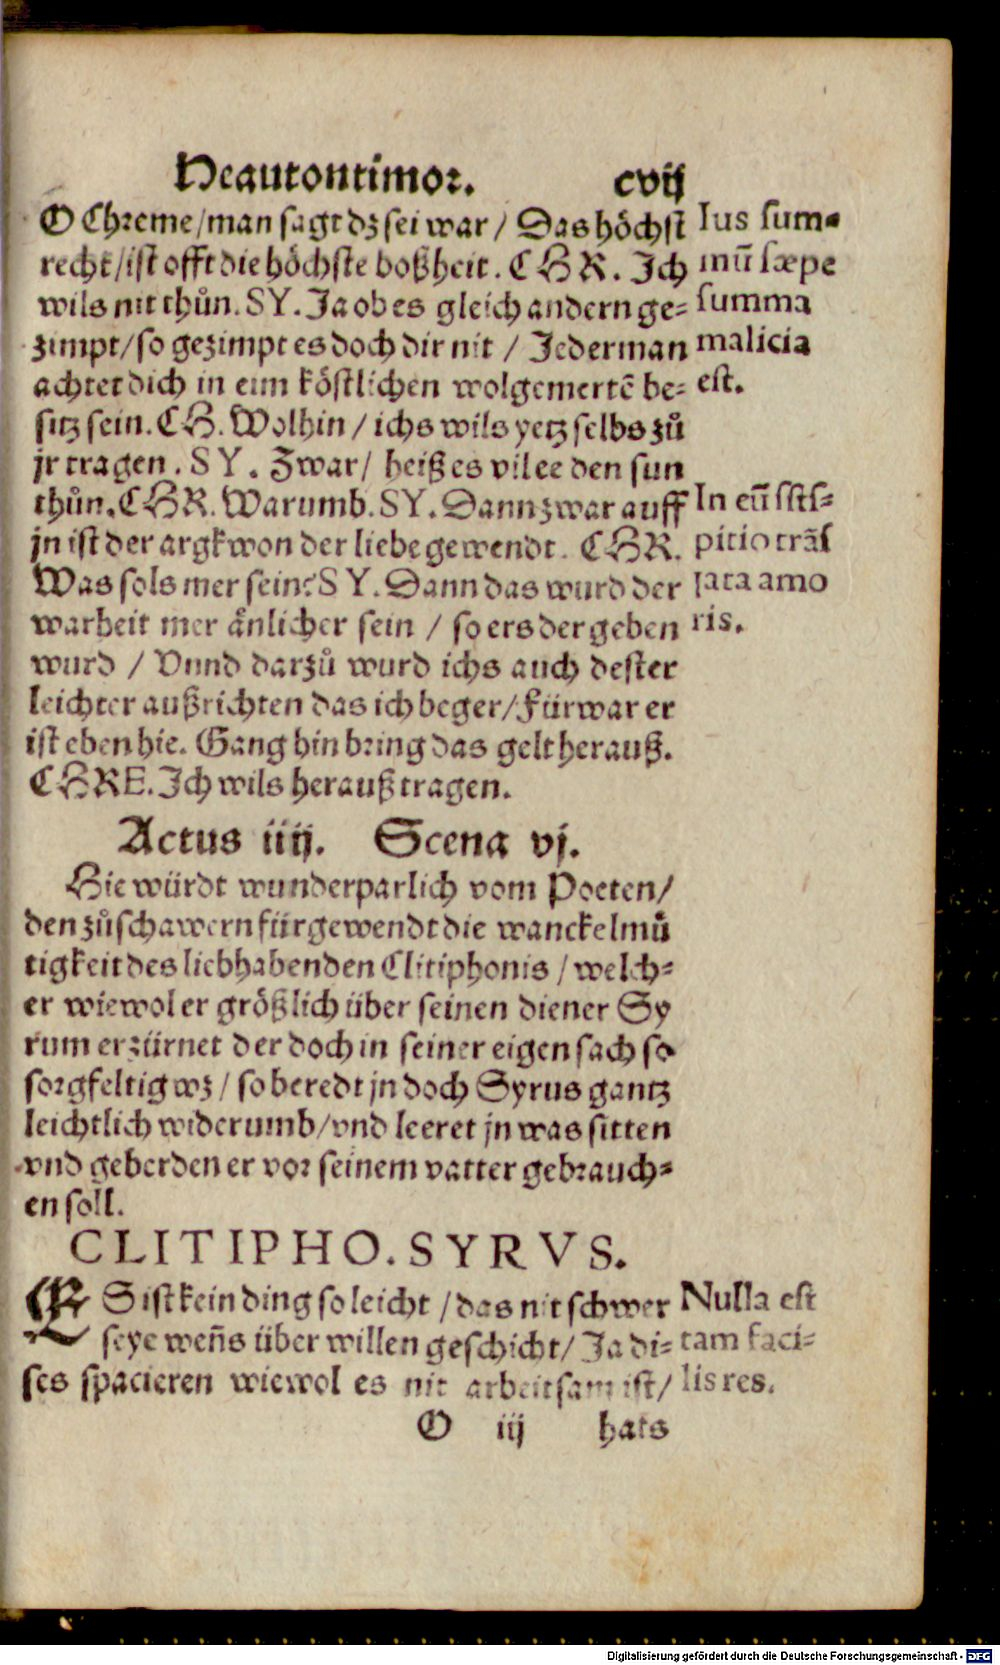 Heautontimor. cvij
O Chreme/man sagt dz sei war / Das höchst
recht/ist offt die höchste boßheit. CHR. Ich
wils nit thůn. SY. Ja ob es gleich andern ge-
zimpt/so gezimpt es doch dir nit / Jederman
achtet dich in eim köstlichen wolgemertē be-
sitz sein. CH. Wolhin / ichs wils yetz selbs zů
jr tragen. SY. Zwar/ heiß es vil ee den sun
thůn. CHR. Warumb. SY. Dann zwar auff
jn ist der argkwon der liebe gewendt. CHR.
Was sols mer sein? SY. Dann das wurd der
warheit mer änlicher sein / so ers der geben
wurd / Vnnd darzů wurd ichs auch dester
leichter außrichten das ich beger/Fürwar er
ist eben hie. Gang hin bring das gelt herauß.
CHRE. Ich wils herauß tragen.
Ius sum-
mū sæpe
summa
malicia
est.
In eū
pitio trās
lata amo
ris.
Actus iiij. Scena vj.
Hie würdt wunderparlich vom Poeten/
den zůschawern fürgewendt die wanckelmů
tigkeit des liebhabenden Clitiphonis / welch-
er wiewol er größlich über seinen diener Sy
rum erzürnet der doch in seiner eigen sach so
sorgfeltig wz / so beredt jn doch Syrus gantz
leichtlich widerumb/vnd leeret jn was sitten
vnd geberden er vor seinem vatter gebrauch-
en soll.
CLITIPHO. SYRVS.
ES ist kein ding so leicht / das nit schwer
seye weñs über willen geschicht/ Ja di-
ses spacieren wiewol es nit arbeitsam ist/
Nulla est
tam faci-
lis res.
O iij hats
Digitalisierung gefördert durch die Deutsche Forschungsgemeinschaft - DFG